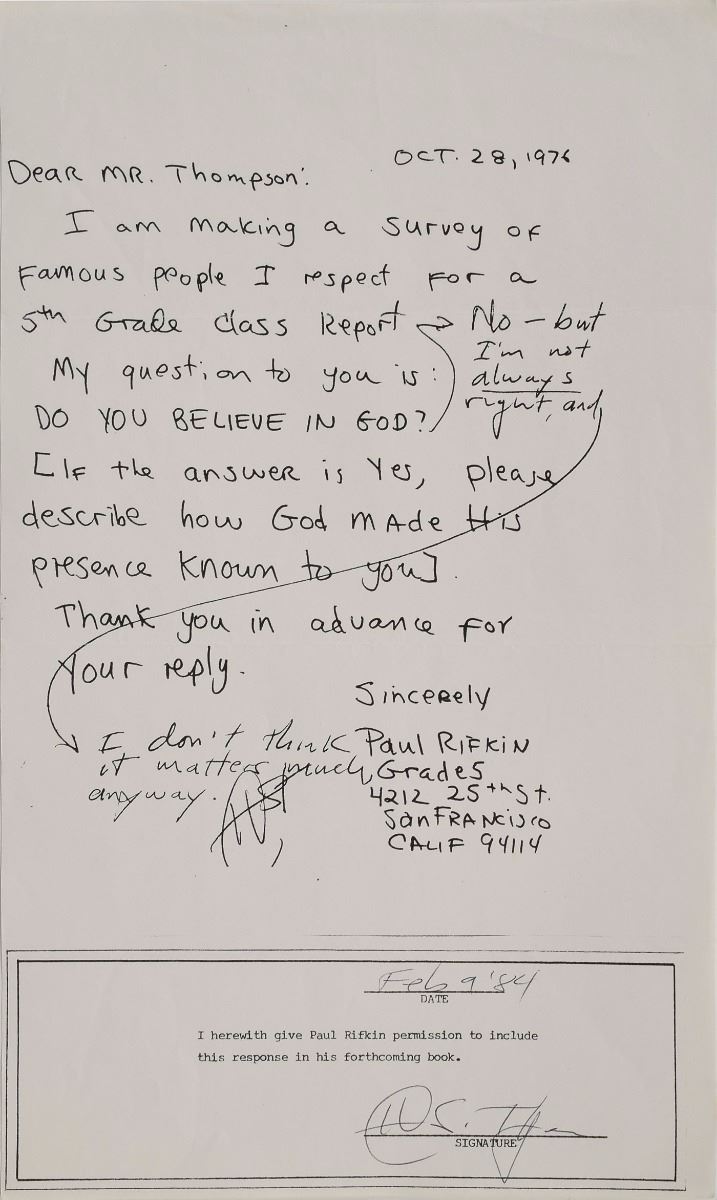 OCT. 28, 1976
Dear MR. Thompson:
I am making a survey of
Famous people I respect for a
5th Grade Class Report
My question to you is:
DO YOU BELIEVE IN GOD?
[If the answer is Yes, please
describe how God made His
presence known to you].
Thank you in advance for
Your reply.
Sincerely
Paul Rifkin
Grade 5
4212 25th St.
San Francisco
CALIF 94114
No - but
I'm not
always
right, and
I don't think
it matters much,
anyway.
Feb 9 '84
DATE
I herewith give Paul Rifkin permission to include
this response in his forthcoming book.
SIGNATURE